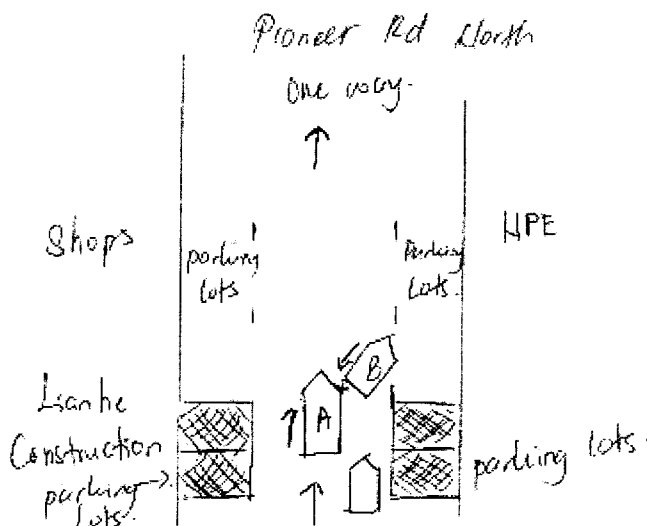 Pioneer Rd North
One way.
Shops
parking
lots
Parking
Lots.
HPE
B
A
Lianhe
Construction
parking
lots.
parking lots.